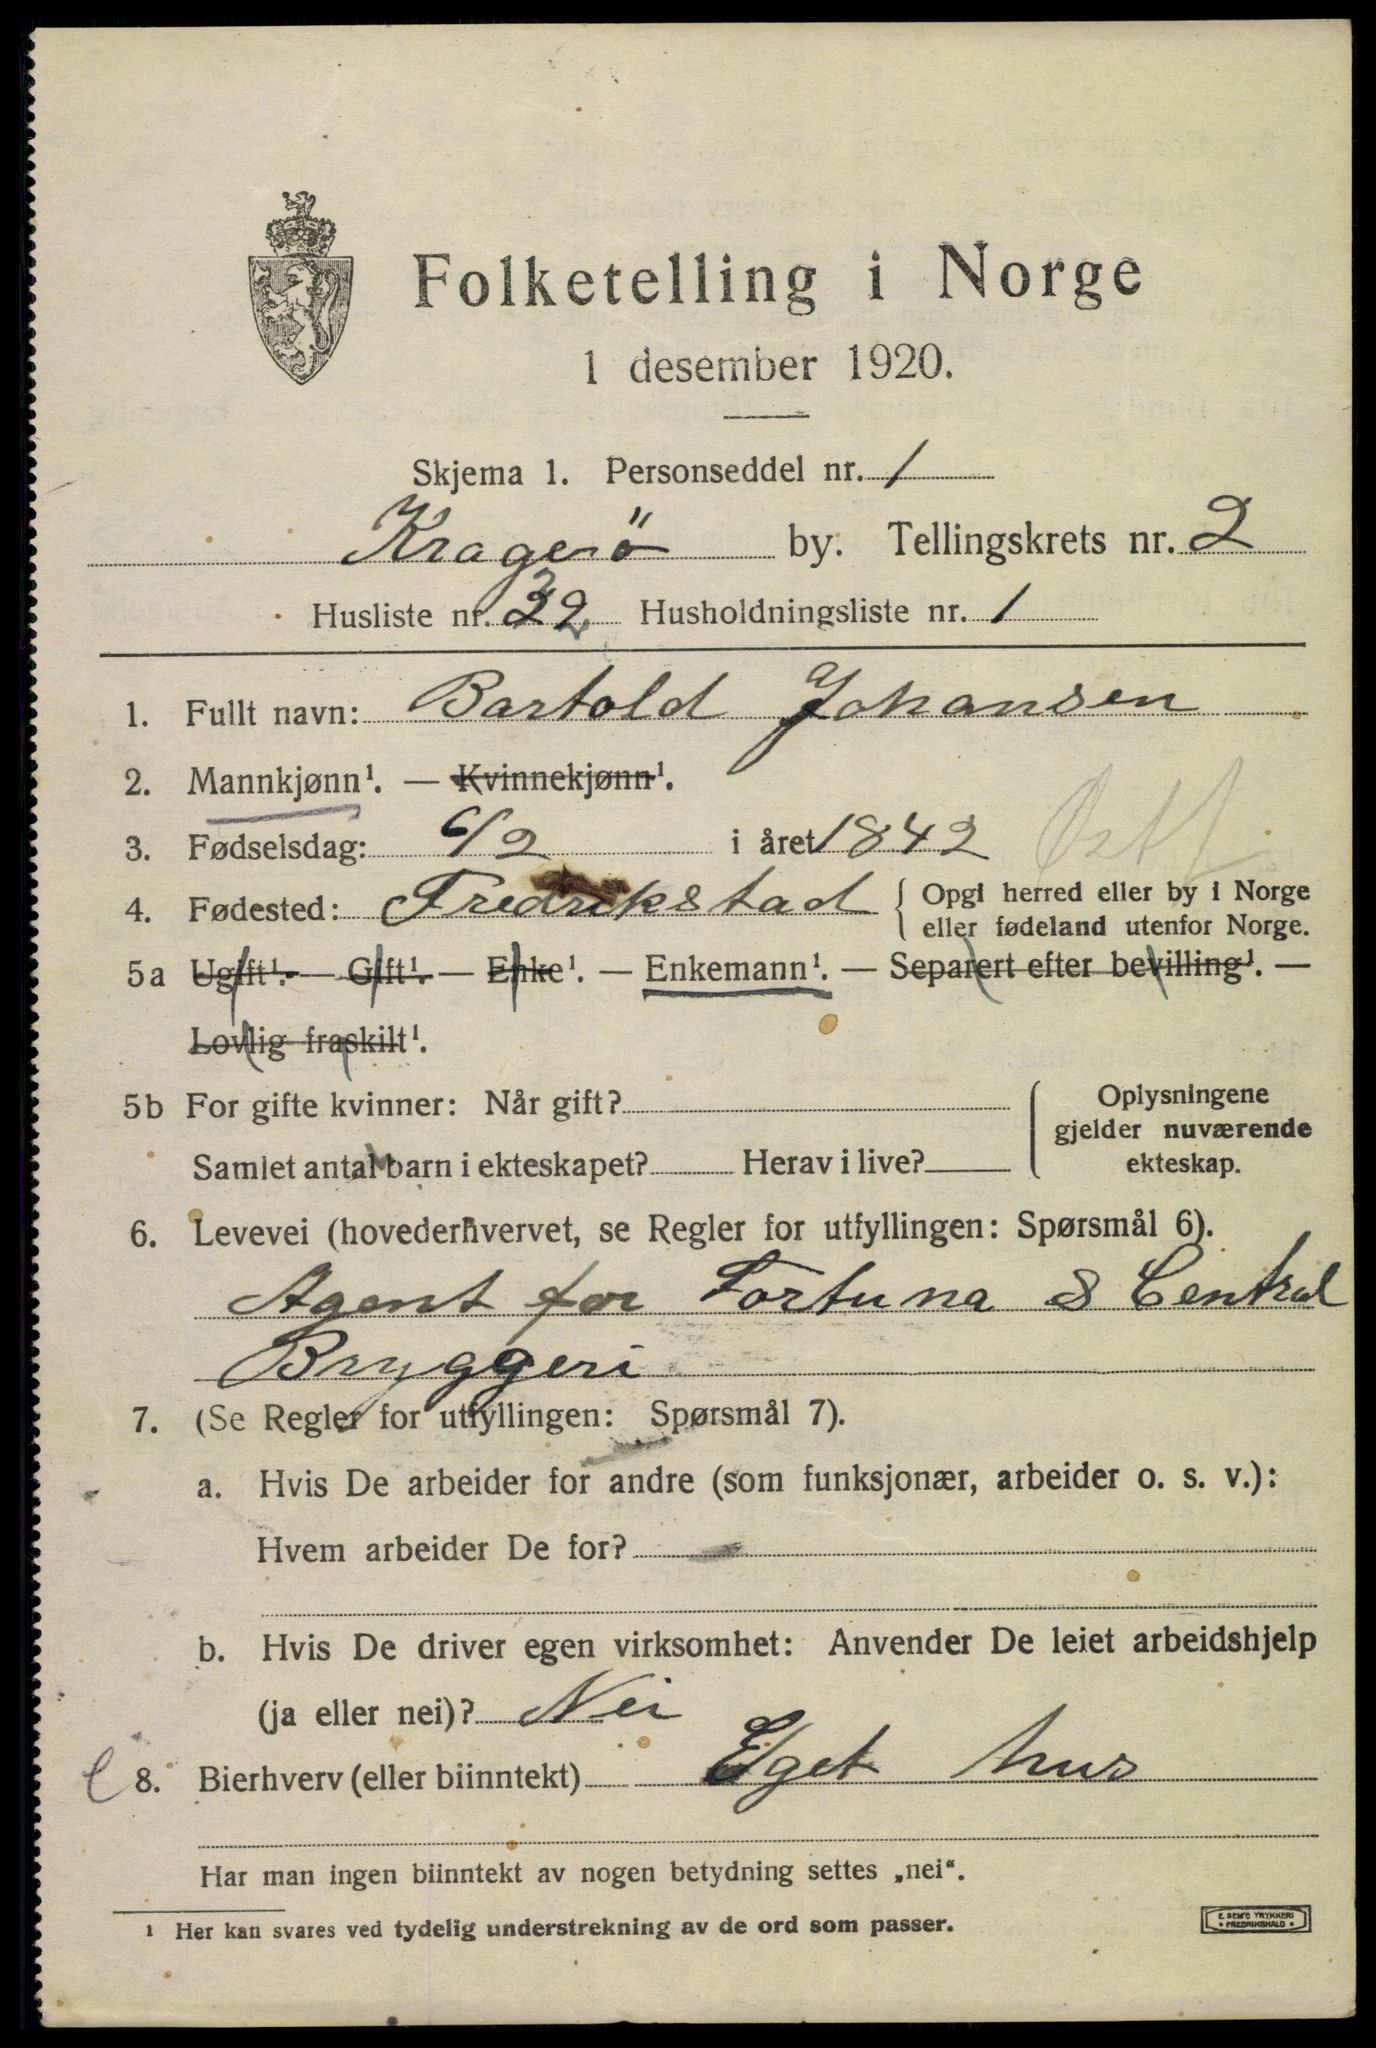 Folketelling i Norge
1 desember 1920.
Skjema 1. Personseddel nr. 1
Kragerö by. Tellingskrets nr. 2
Husliste nr. 32 Husholdningsliste nr. 1
1. Fullt navn: Bartold Johansen
2. Mannkjønn¹. — Kvinnekjønn¹.
3. Fødselsdag: 6/2 i året 1842
4. Fødested: Fredrikstad { Opgi herred eller by i Norge
eller fødeland utenfor Norge.
5a Ugift¹. — Gift¹. — Enke¹. — Enkemann¹. — Separert efter bevilling¹. —
Lovlig fraskilt¹.
5b For gifte kvinner: Når gift? Oplysningene
gjelder nuværende
Samlet antal barn i ekteskapet? Herav i live? ekteskap.
6. Levevei (hovederhvervet, se Regler for utfyllingen: Spørsmål 6).
Agent for Fortuna & Central
Bryggeri
7. (Se Regler for utfyllingen: Spørsmål 7).
a. Hvis De arbeider for andre (som funksjonær, arbeider o. s. v.):
Hvem arbeider De for?
b. Hvis De driver egen virksomhet: Anvender De leiet arbeidshjelp
(ja eller nei)? Nei
8. Bierhverv (eller biinntekt) Eget hus
Har man ingen biinntekt av nogen betydning settes „nei“.
¹ Her kan svares ved tydelig understrekning av de ord som passer.
E SEM'S TRYKKERI
• FREDRIKSHALD •